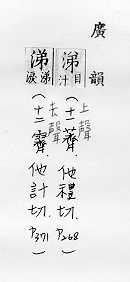 廣韻
涕 目汁 上聲
(十一薺.他禮切.P.268)
涕 涕淚 去聲
(十二霽.他計切.P.371)